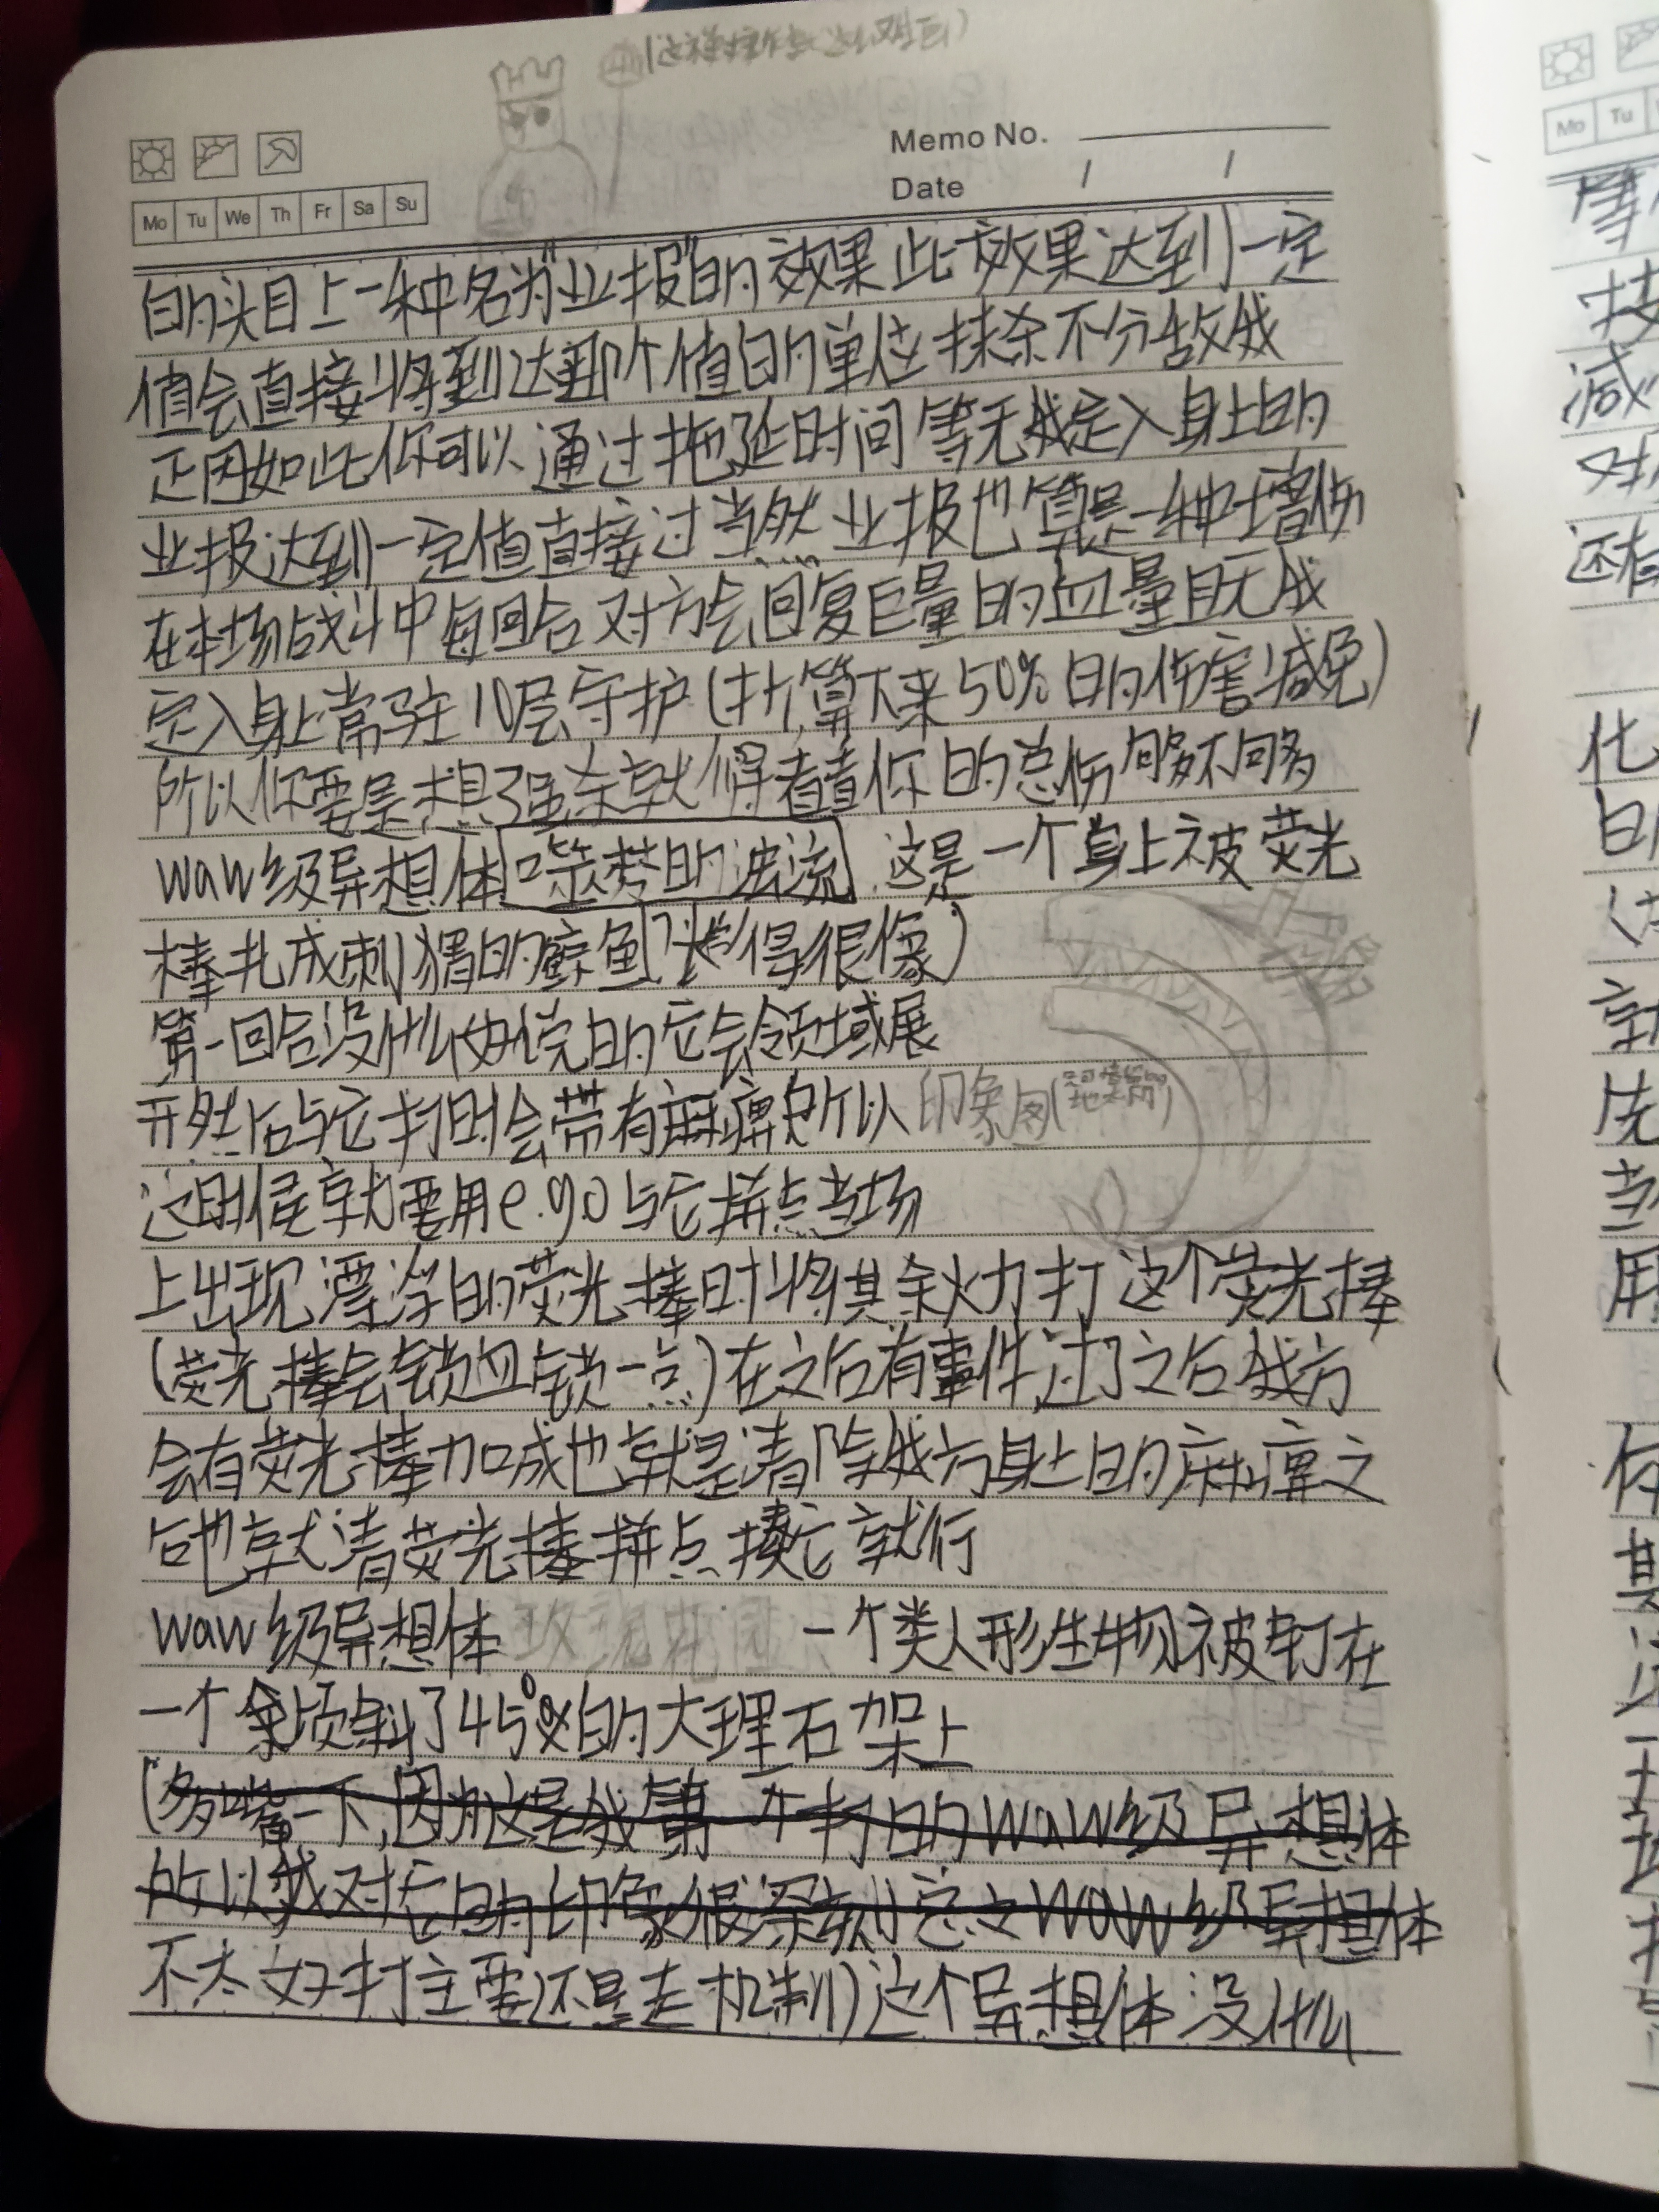 Memo No.
Date / /
Mo Tu We Th Fr Sa Su
的头目上一种名为"业报"的效果此效果达到一定
值会直接将到达那个值的单位抹杀不分敌我
正因如此你可以通过拖延时间等无我定入身上的
业报达到一定值直接过当然业报也算是一种增伤
在本场战斗中每回合对方会回复巨量的血量且无我
定入身上常驻10层守护(折算下来50%的伤害减免)
所以你要是想强杀就得看看你的总伤够不够
waw级异想体 的波流 这是一个身上被荧光
棒扎成刺猬的鲸鱼(长得很像)
第一回合没什么好说的它会领域展
开然后与它打时会带有麻痹所以
印象图
这时候就要用e.g.o与它拼点当场
上出现漂浮的荧光棒时将其余火力打这个荧光棒
(荧光棒会锁血锁一点)在之后有事件过了之后我方
会有荧光棒加成也就是清除我方身上的麻痹之
后也就清荧光棒拼点揍它就行
waw级异想体 玫瑰花 一个类人形生物被钉在
一个倾斜了45°的大理石架上
(多嘴一下,因为这是我第一个打的waw级异想体
所以我对它的印象很深刻总之waw级异想体
不太好打主要还是走机制)这个异想体没什么
Mo Tu
等
技
减
对
还有
化
的
就
先
当
用